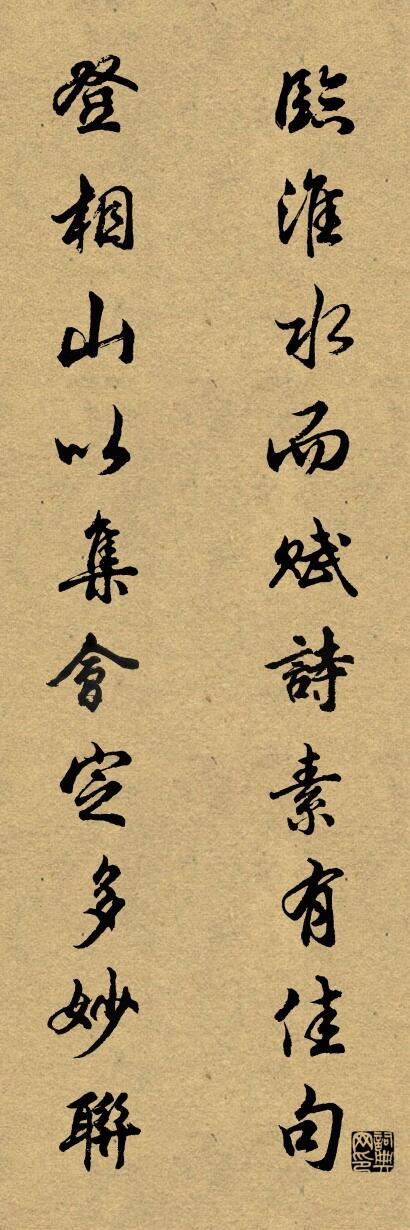 臨淮水而賦詩素有佳句
登相山以集會定多妙聯
詞典网印